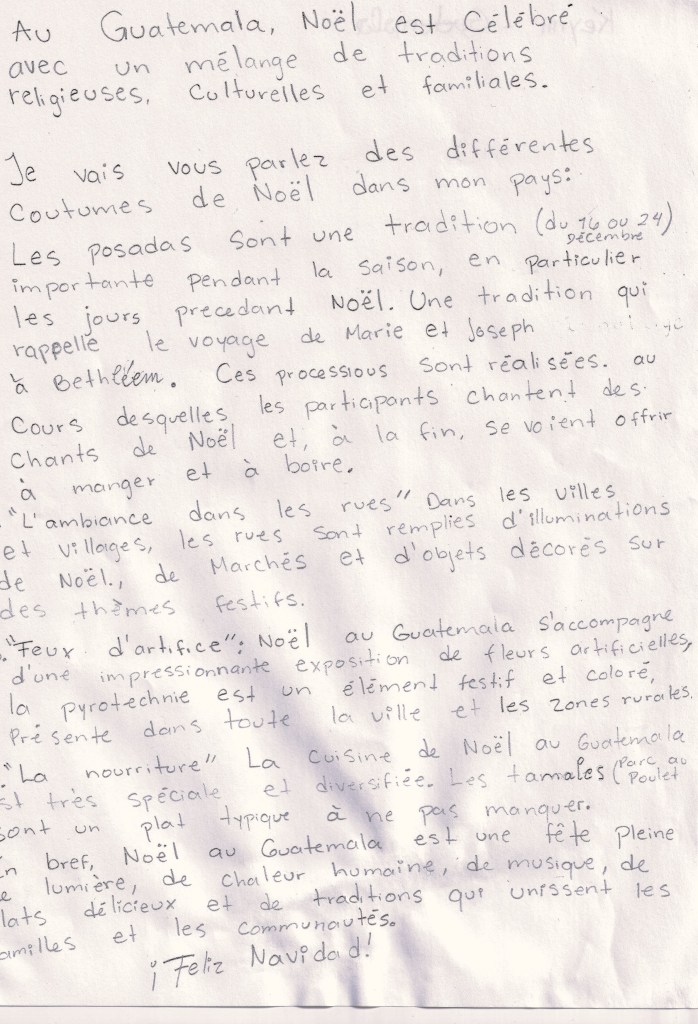 Au Guatemala, Noël est Célébré
avec un mélange de traditions
religieuses, Culturelles et familiales.
Je vais vous parlez des différentes
Coutumes de Noël dans mon pays:
Les posadas sont une tradition (du 16 au 24)
Décembre
importante pendant la saison, en particulier
les jours precedant Noël. Une tradition qui
rappelle le voyage de Marie et Joseph
à Bethléem. Ces processious sont réalisées. au
Cours desquelles les participants chantent des
Chants de Noël et, à la fin, se voient offrir
à manger et à boire.
"L'ambiance dans les rues" Dans les villes
et villages, les rues sont remplies d'illuminations
de Noël., de Marchés et d'objets décorés sur
des thèmes festifs.
"Feux d'artifice": Noël au Guatemala s'accompagne
d'une impressionnante exposition de fleurs artificielles,
la pyrotechnie est un élément festif et coloré,
Présente dans toute la ville et les zones rurales.
"La nourriture" La cuisine de Noël au Guatemala
st très spéciale et diversifiée. Les tamales (Parc au
Poulet
sont un plat typique à ne pas manquer.
n bref, Noël au Guatemala est une fête pleine
e lumière, de chaleur humaine, de musique, de
lats délicieux et de traditions qui unissent les
amilles et les communautés.
¡Feliz Navidad!